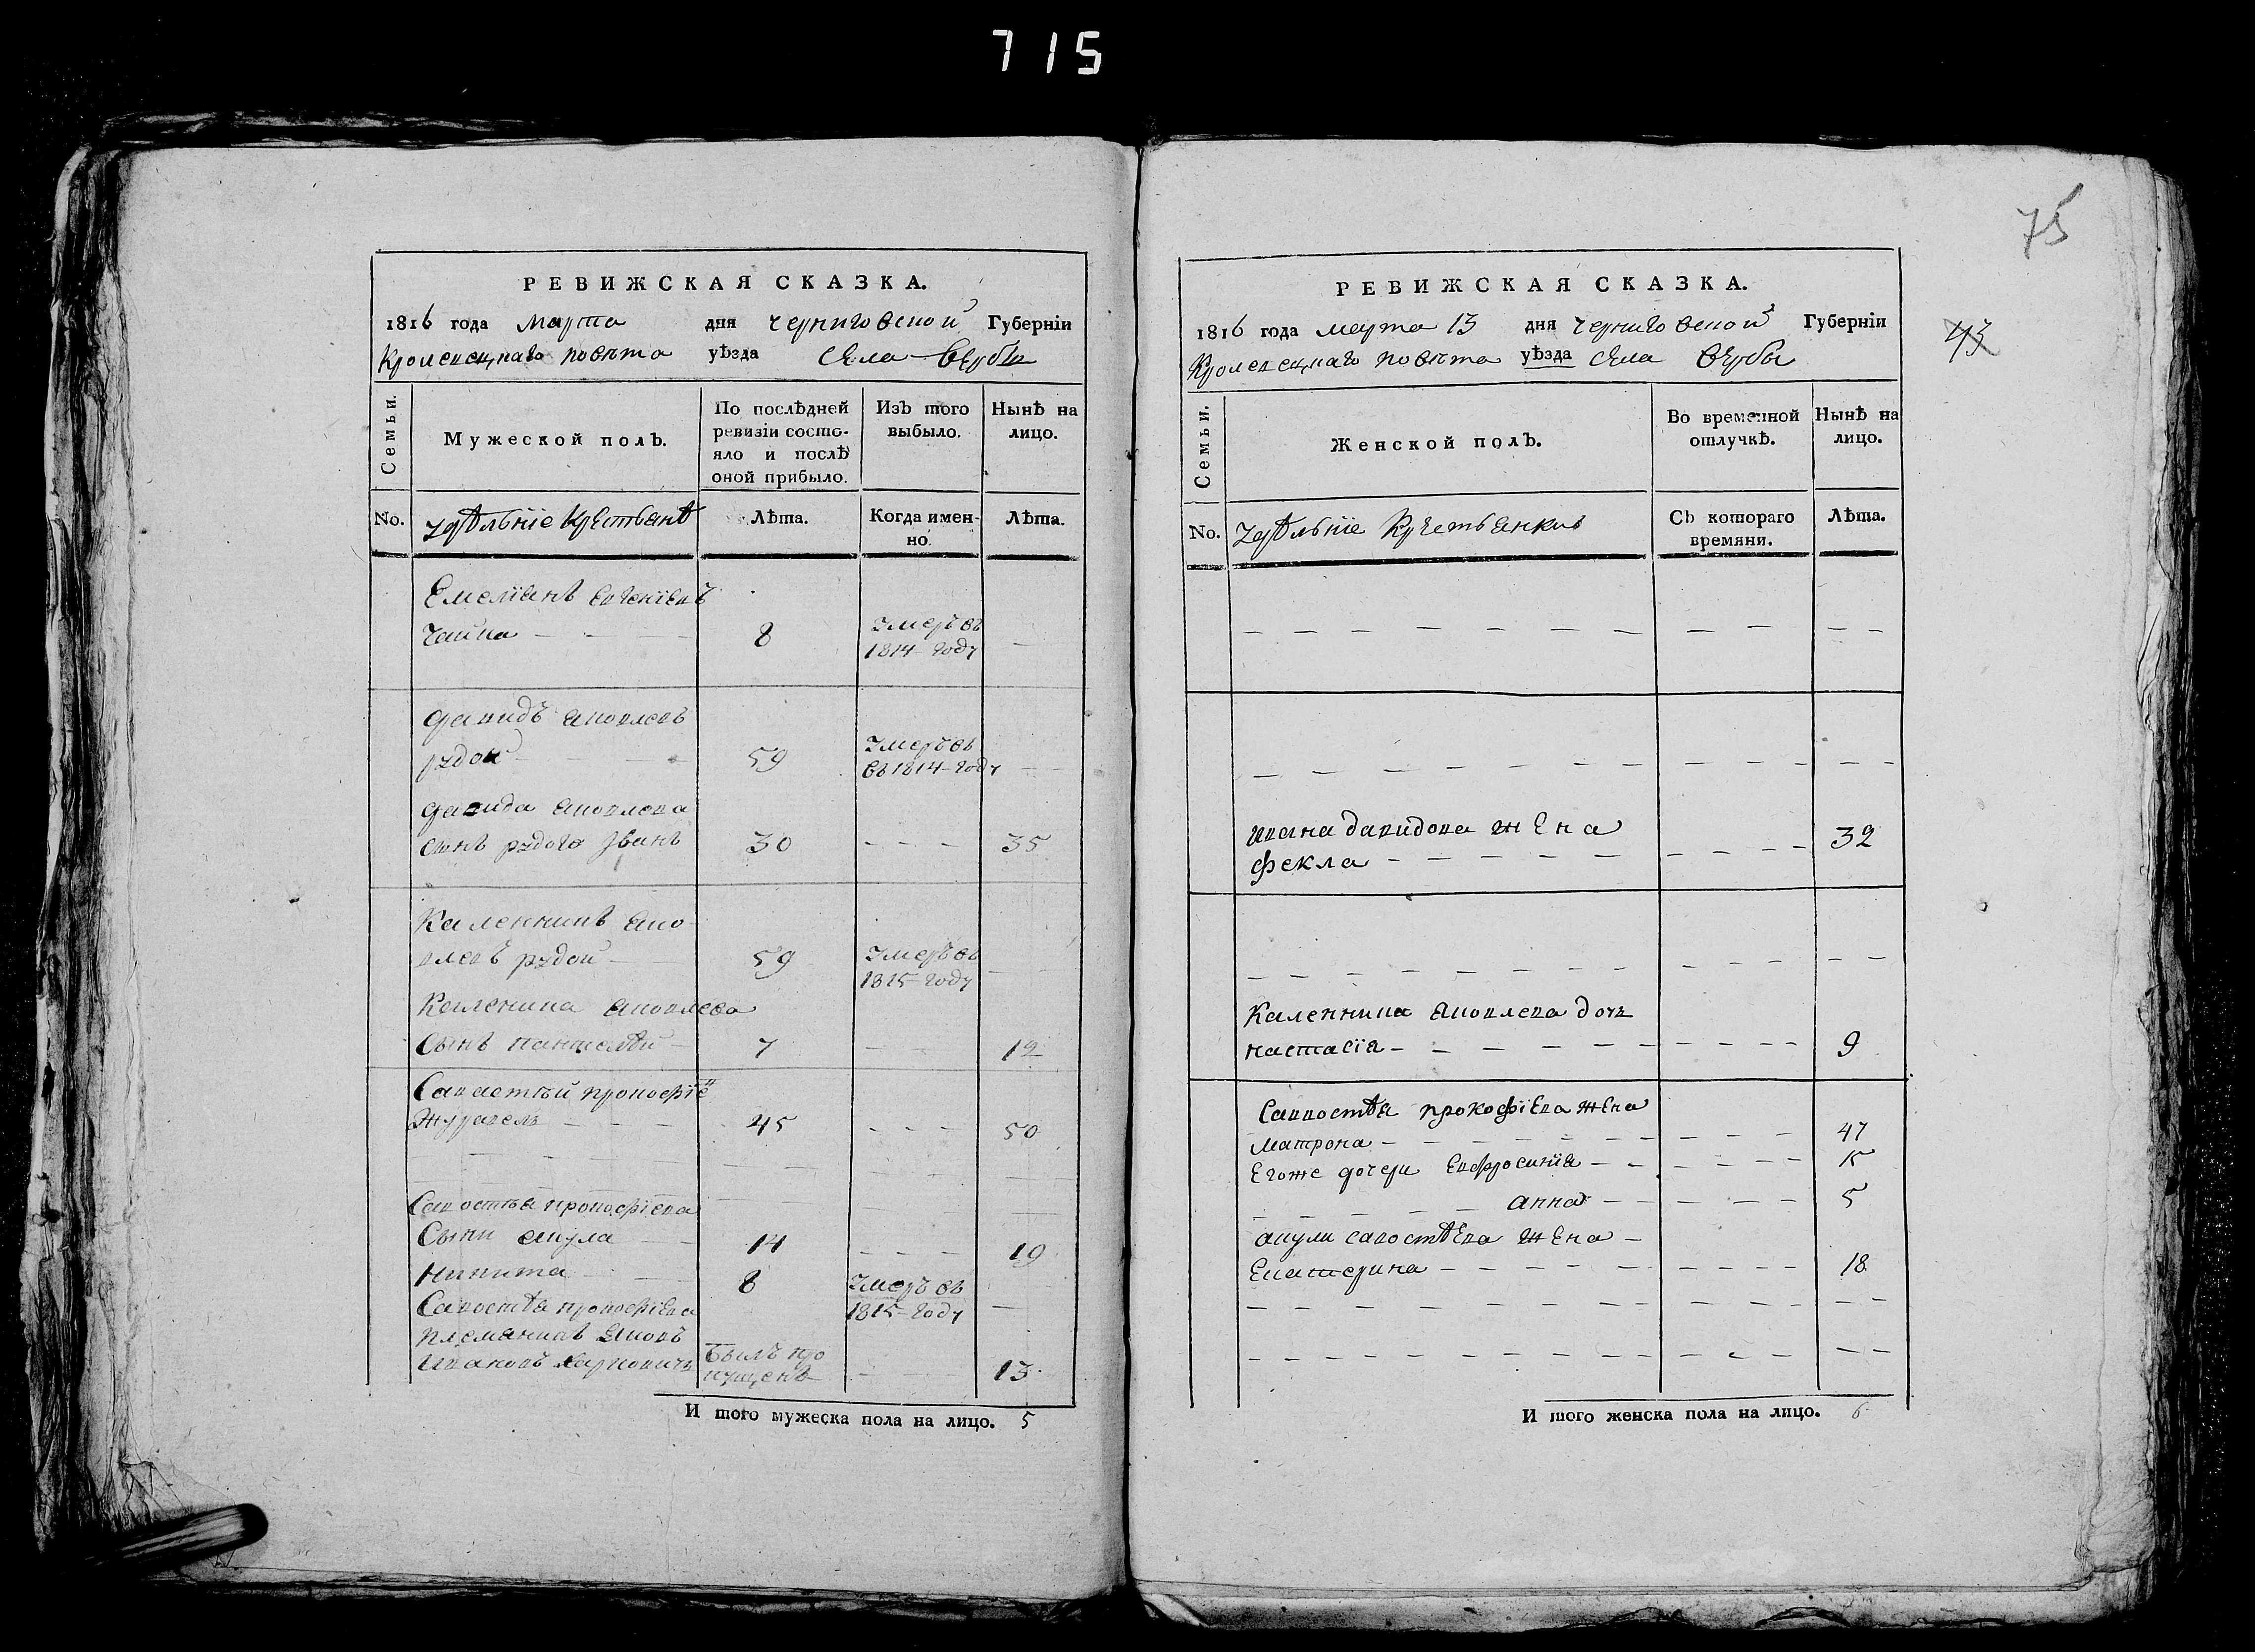 715
75
43
РЕВИЖСКАЯ СКАЗКА.
1816 года марта дня черниговской Губерніи
Кролевецкаго повѣта уѣзда села Вербы
Семьи.
Мужеской полъ.
По послѣдней ревизіи состояло и послѣ оной прибыло.
Изъ того выбыло.
Нынѣ на лицо.
No.
удѣльніе крестьянѣ
Лѣта.
Когда именно.
Лѣта.
Емеліянъ Евгеніевъ
Чайка 8 умеръ въ
1814 году
давидъ яковлевъ
рудой 59 умеръ въ
въ 1814 году
давида яковлева
сынъ рудого Іванъ 30 35
Каленникъ яко
влевъ рудой 59 умеръ въ
1815 году
Каленика яковлева
сынъ пантелѣй 7 12
Савастѣй прокофіе
журавель 45 50
Савостѣя прокофіева
сыни акула 14 19
никита 8 умеръ въ
Савостѣя прокофіева 1815 году
племянникъ яковъ
Ивановъ карповичъ былъ про
пущенъ 13
И того мужеска пола на лицо. 5
РЕВИЖСКАЯ СКАЗКА.
1816 года марта 13 дня черниговской Губерніи
Кролевецкаго повѣта уѣзда села Вербы
Семьи.
Женской полъ.
Во временной отлучкѣ.
Нынѣ на лицо.
No.
удѣльніе крестьянки
Съ котораго времяни.
Лѣта.
ивана давидова жена
фекла 32
Каленника яковлева дочь
настасія 9
Савостѣя прокофіева жена
матрона 47
Егоже дочери Евфросинія 15
анна 5
акули савостѣева жена
Екатерина 18
И того женска пола на лицо. 6